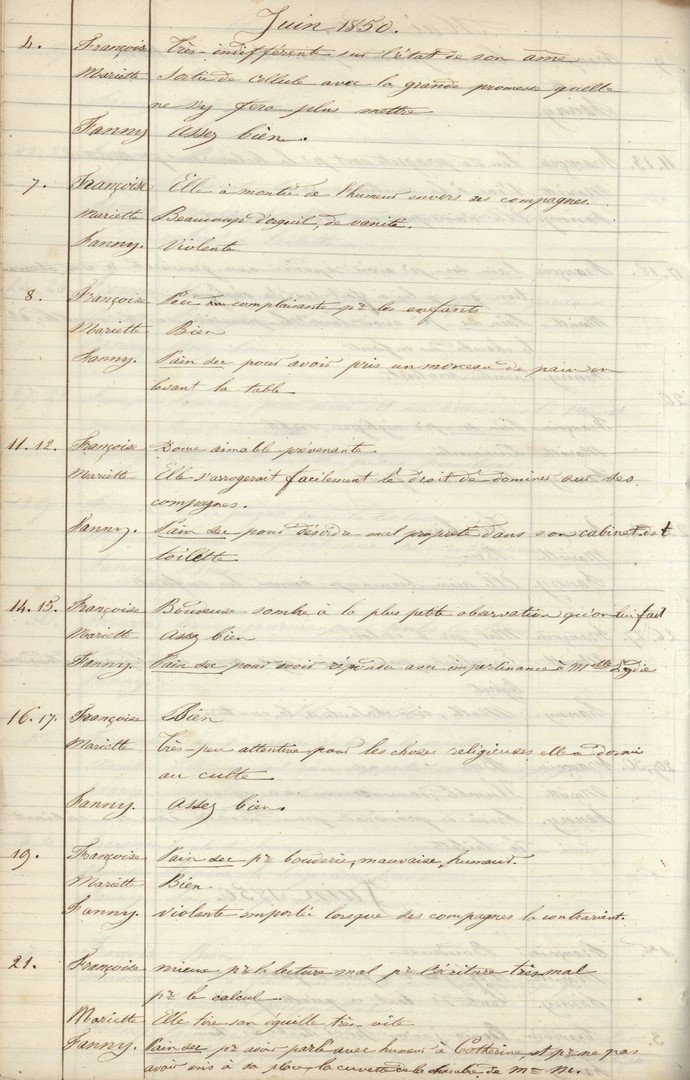 Juin 1850.
4. Françoise Très-indifférent sur l'état de son âme
Mariette Sortie de Cellule avec la grande promesse quelle
ne s'y fera plus mettre
Fanny Assez bien.
7. Françoise Elle à montré de l'humeur envers ses compagnes.
Mariette Beaucoup d'orgueil, de vanité.
Fanny. Violente
8. Françoise Peu complaisante pr les enfants
Mariette Bien
Fanny. Pain sec pour avoir pris un morceau de pain en
levant la table
11.12. Françoise Douce aimable prévenante.
Mariette Elle s'arrogerait facilement le droit de dominer sur ses
compagnes.
Fanny. Pain sec pour désordre mal propreté dans son cabinet de
toilette
14.15. Françoise Boudeuse sombre à la plus petite observation qu'on lui fait
Mariette Assez bien
Fanny. Pain sec pour avoir répondu avec impertinance à Melle Lydie
16.17. Françoise Bien
Mariette Très-peu attentive pour les choses religieuses elle à dormi
au culte
Fanny. Assez bien.
19. Françoise Pain sec pr bouderie, mauvaise, humeur.
Mariett Bien
Fanny. Violente emportée lorsque ses compagnes la contrarient.
21. Françoise mieux pr la lecture mal pr l'écriture très mal
pr le calcul.
Mariette Elle tire son éguille très vite
Fanny. Pain sec pr avoir parlé avec humeur à Catherine, et pr ne pas
avoir mis à sa place la cuvette de la chambre de me M.